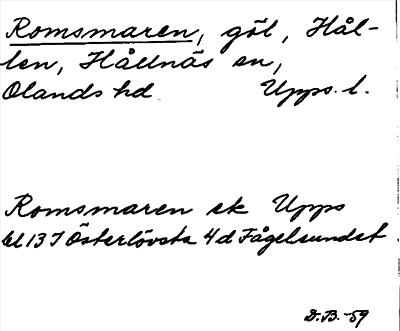 Romsmaren, göl, Hål-
len, Hållnäs sn,
Olands hd Upps. l.
Romsmaren ek Upps
bl 13 I Österlövsta 4 d Fågelsundet
D.B. -59